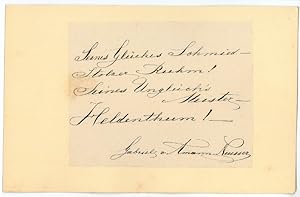 Seines Glückes Schmied –
Stolzer Ruhm!
Seines Unglücks
Meister –
Heldenthum! –
Gabriele Amann